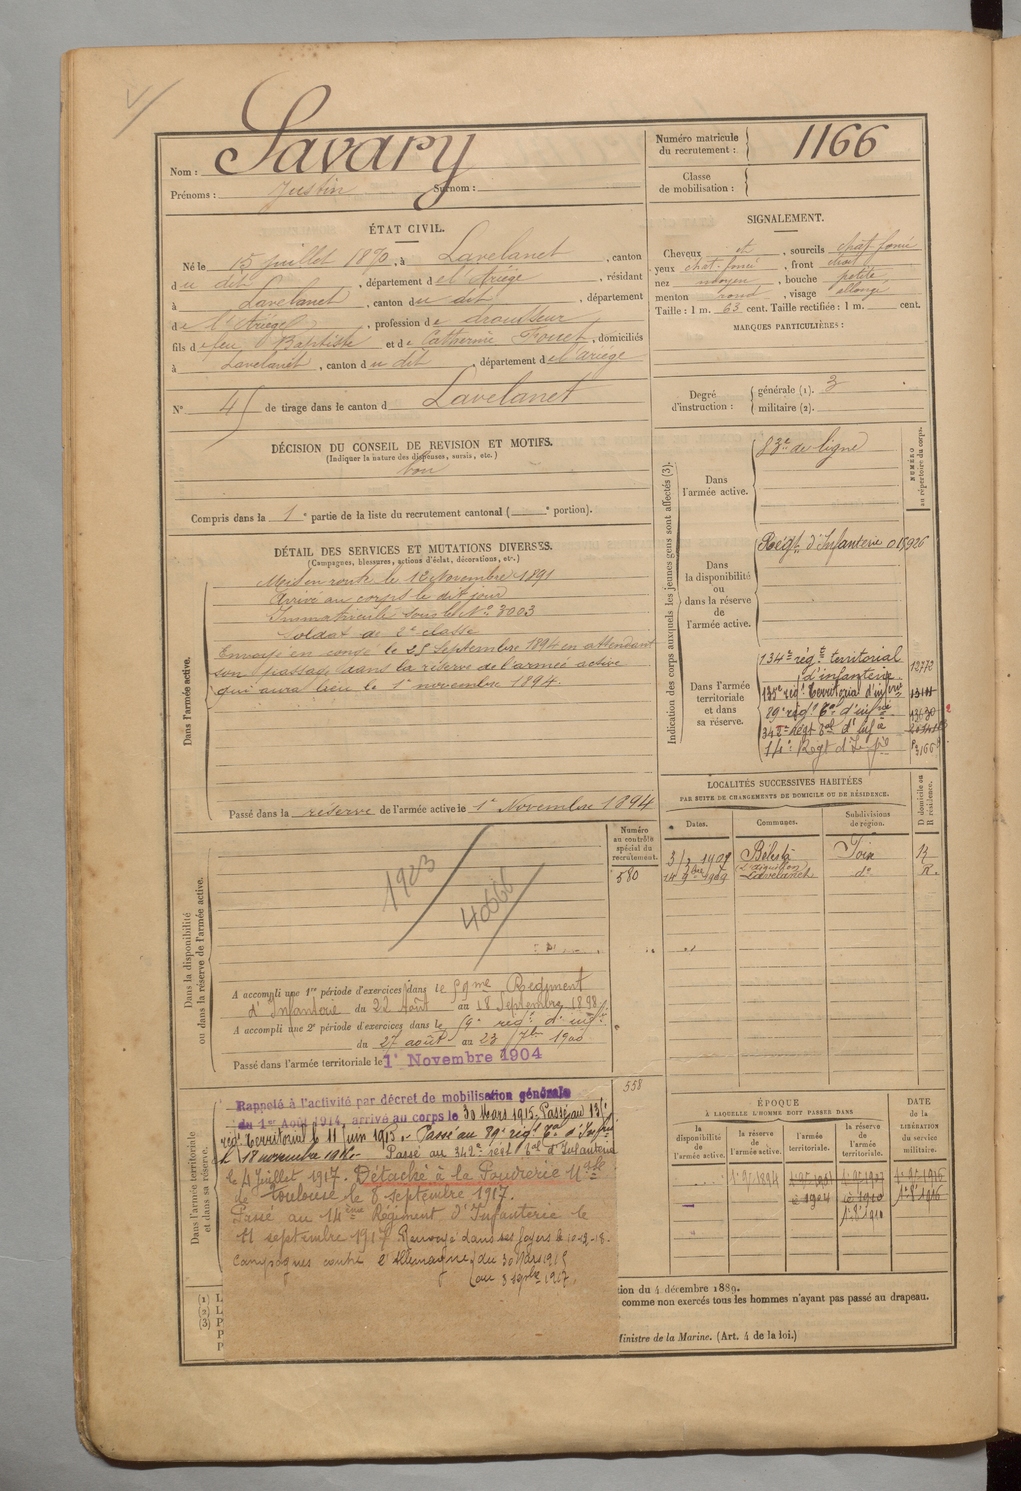 Nom : Savary
Prénoms : Justin Surnom :
Numéro matricule du recrutement : 1166
Classe de mobilisation :
ÉTAT CIVIL.
Né le 15 juillet 1870, à Lavelanet, canton
du dit, département de l'Ariège, résidant
à Lavelanet, canton du dit, département
de l'Ariège, profession de
fils de feu J Baptiste et de Catherine, domiciliés
à Lavelanet, canton du dit, département de l'Ariège
N° 45 de tirage dans le canton d Lavelanet
SIGNALEMENT.
Cheveux et, sourcils chat foncé
yeux chat-foncé, front
nez moyen, bouche petite
menton rond, visage allongé
Taille : 1 m. 63 cent. Taille rectifiée : 1 m. cent.
MARQUES PARTICULIÈRES :
Degré d'instruction : générale (1). 3
militaire (2).
DÉCISION DU CONSEIL DE REVISION ET MOTIFS.
(Indiquer la nature des dispenses, sursis, etc.)
bon
Compris dans la 1e partie de la liste du recrutement cantonal ( e portion).
DÉTAIL DES SERVICES ET MUTATIONS DIVERSES.
(Campagnes, blessures, actions d'éclat, décorations, etc.)
Dans l'armée active.
Mis en route le 12 Novembre 1891
Arrivé au corps le dit jour
Immatriculé sous le N° 3003
Soldat de 2e classe
Envoyé en congé le 25 Septembre 1894 en attendant
son passage dans la réserve de l'armée active
qui aura lieu le 1er novembre 1894.
Passé dans la réserve de l'armée active le 1er Novembre 1894
Indication des corps auxquels les jeunes gens sont affectés (3).
NUMÉRO au répertoire du corps.
Dans l'armée active.
83e de ligne
Dans la disponibilité ou dans la réserve de l'armée active.
Régt d'Infanterie 015926
Dans l'armée territoriale et dans sa réserve.
134e rég.t territorial
d'infanterie
135e régt territorial d'infrie
89e régt Tal d'infrie
342e Régt Tal d'Infie
14e Régt d'Infie
LOCALITÉS SUCCESSIVES HABITÉES
PAR SUITE DE CHANGEMENTS DE DOMICILE OU DE RÉSIDENCE.
D domicile ou R résidence.
Dates. Communes. Subdivisions de région.
Bélesta Foix R
1909 Lavelanet do R.
Numéro au contrôle spécial du recrutement.
580
Dans la disponibilité ou dans la réserve de l'armée active.
1903
A accompli une 1re période d'exercices dans le 59me Régiment
d'Infanterie du 22 Août au 18 Septembre 1898
A accompli une 2e période d'exercices dans le 59e régt d'inf.ie
du 27 août au 23 7bre 1900
Passé dans l'armée territoriale le 1er Novembre 1904
558
Dans l'armée territoriale et dans sa réserve.
Rappelé à l'activité par décret de mobilisation générale
du 1er Août 1914, arrivé au corps le 30 Mars 1915. Passé au 135e
régt territorial le 11 juin 1915. Passé au 89e régt Tal d'Infrie
le 18 novembre Passé au 342e régt Tal d'Infanterie
le 4 Juillet 1917. Détaché à la Poudrerie Nale
de Toulouse le 8 septembre 1917.
Passé au 14ème Régiment d'Infanterie le
11 septembre 1917 Renvoyé dans ses foyers le 10-12-18.
Campagnes contre l'Allemagne du 30 Mars 1915
au 3 1917
ÉPOQUE
À LAQUELLE L'HOMME DOIT PASSER DANS
la disponibilité de l'armée active. la réserve de l'armée active. l'armée territoriale. la réserve de l'armée territoriale.
DATE de la LIBÉRATION du service militaire.
tion du 4 décembre 1889.
comme non exercés tous les hommes n'ayant pas passé au drapeau.
Ministre de la Marine. (Art. 4 de la loi.)
(1)
(2)
(3)